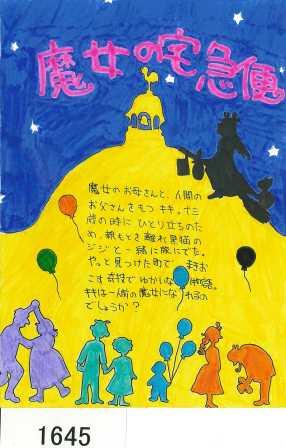 魔女の宅急便
魔女のお母さんと、人間の
お父さんをもつキキ。十三
歳の時に ひとり立ちのた
め、親もとを離れ黒猫の
ジジと一緒に旅にでた。
やっと見つけた町で、まきお
こす奇抜でゆかいな物語。
キキは一人前の魔女になれるの
でしょうか?
1645